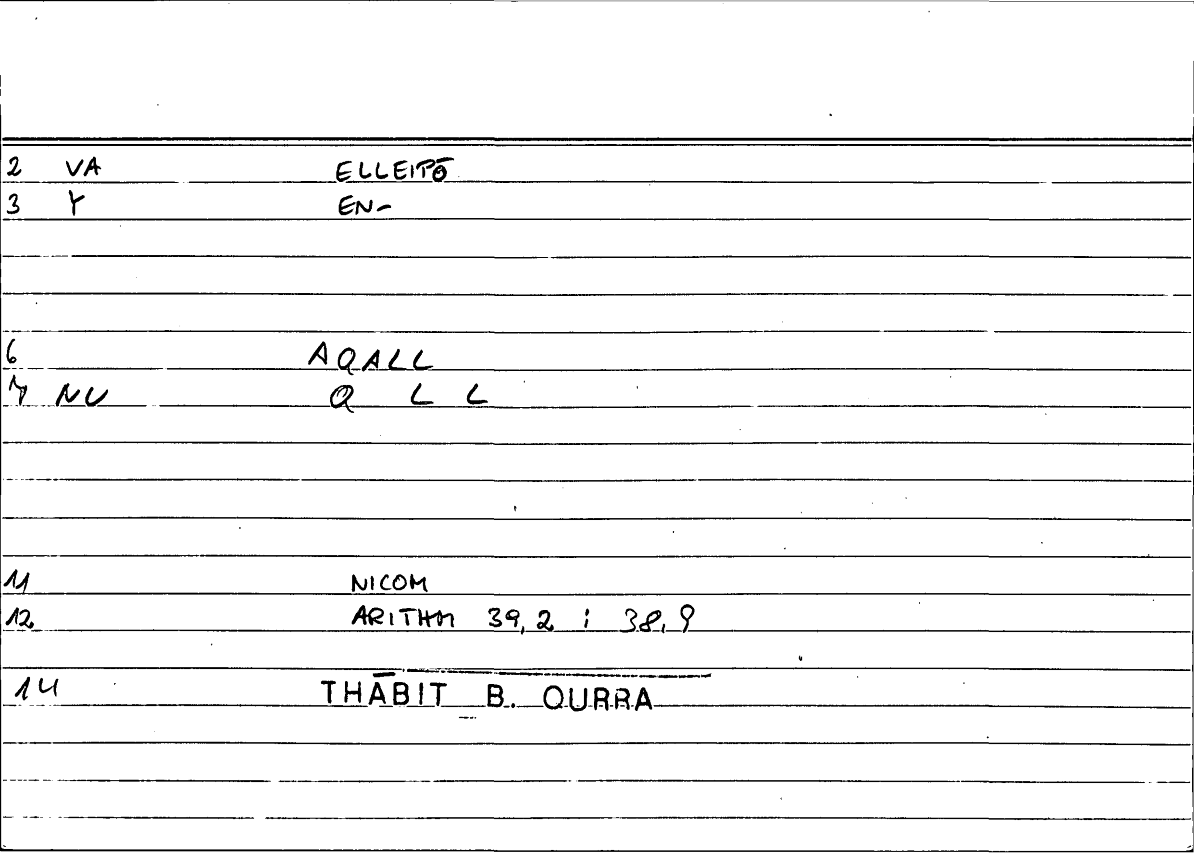 2 VA ELLEIPŌ
3 Y EN-
6 AQALL
7 NU Q L L
11 NICOM
12 ARITHM 39,2 ; 38,9
14 THĀBIT B. QURRA